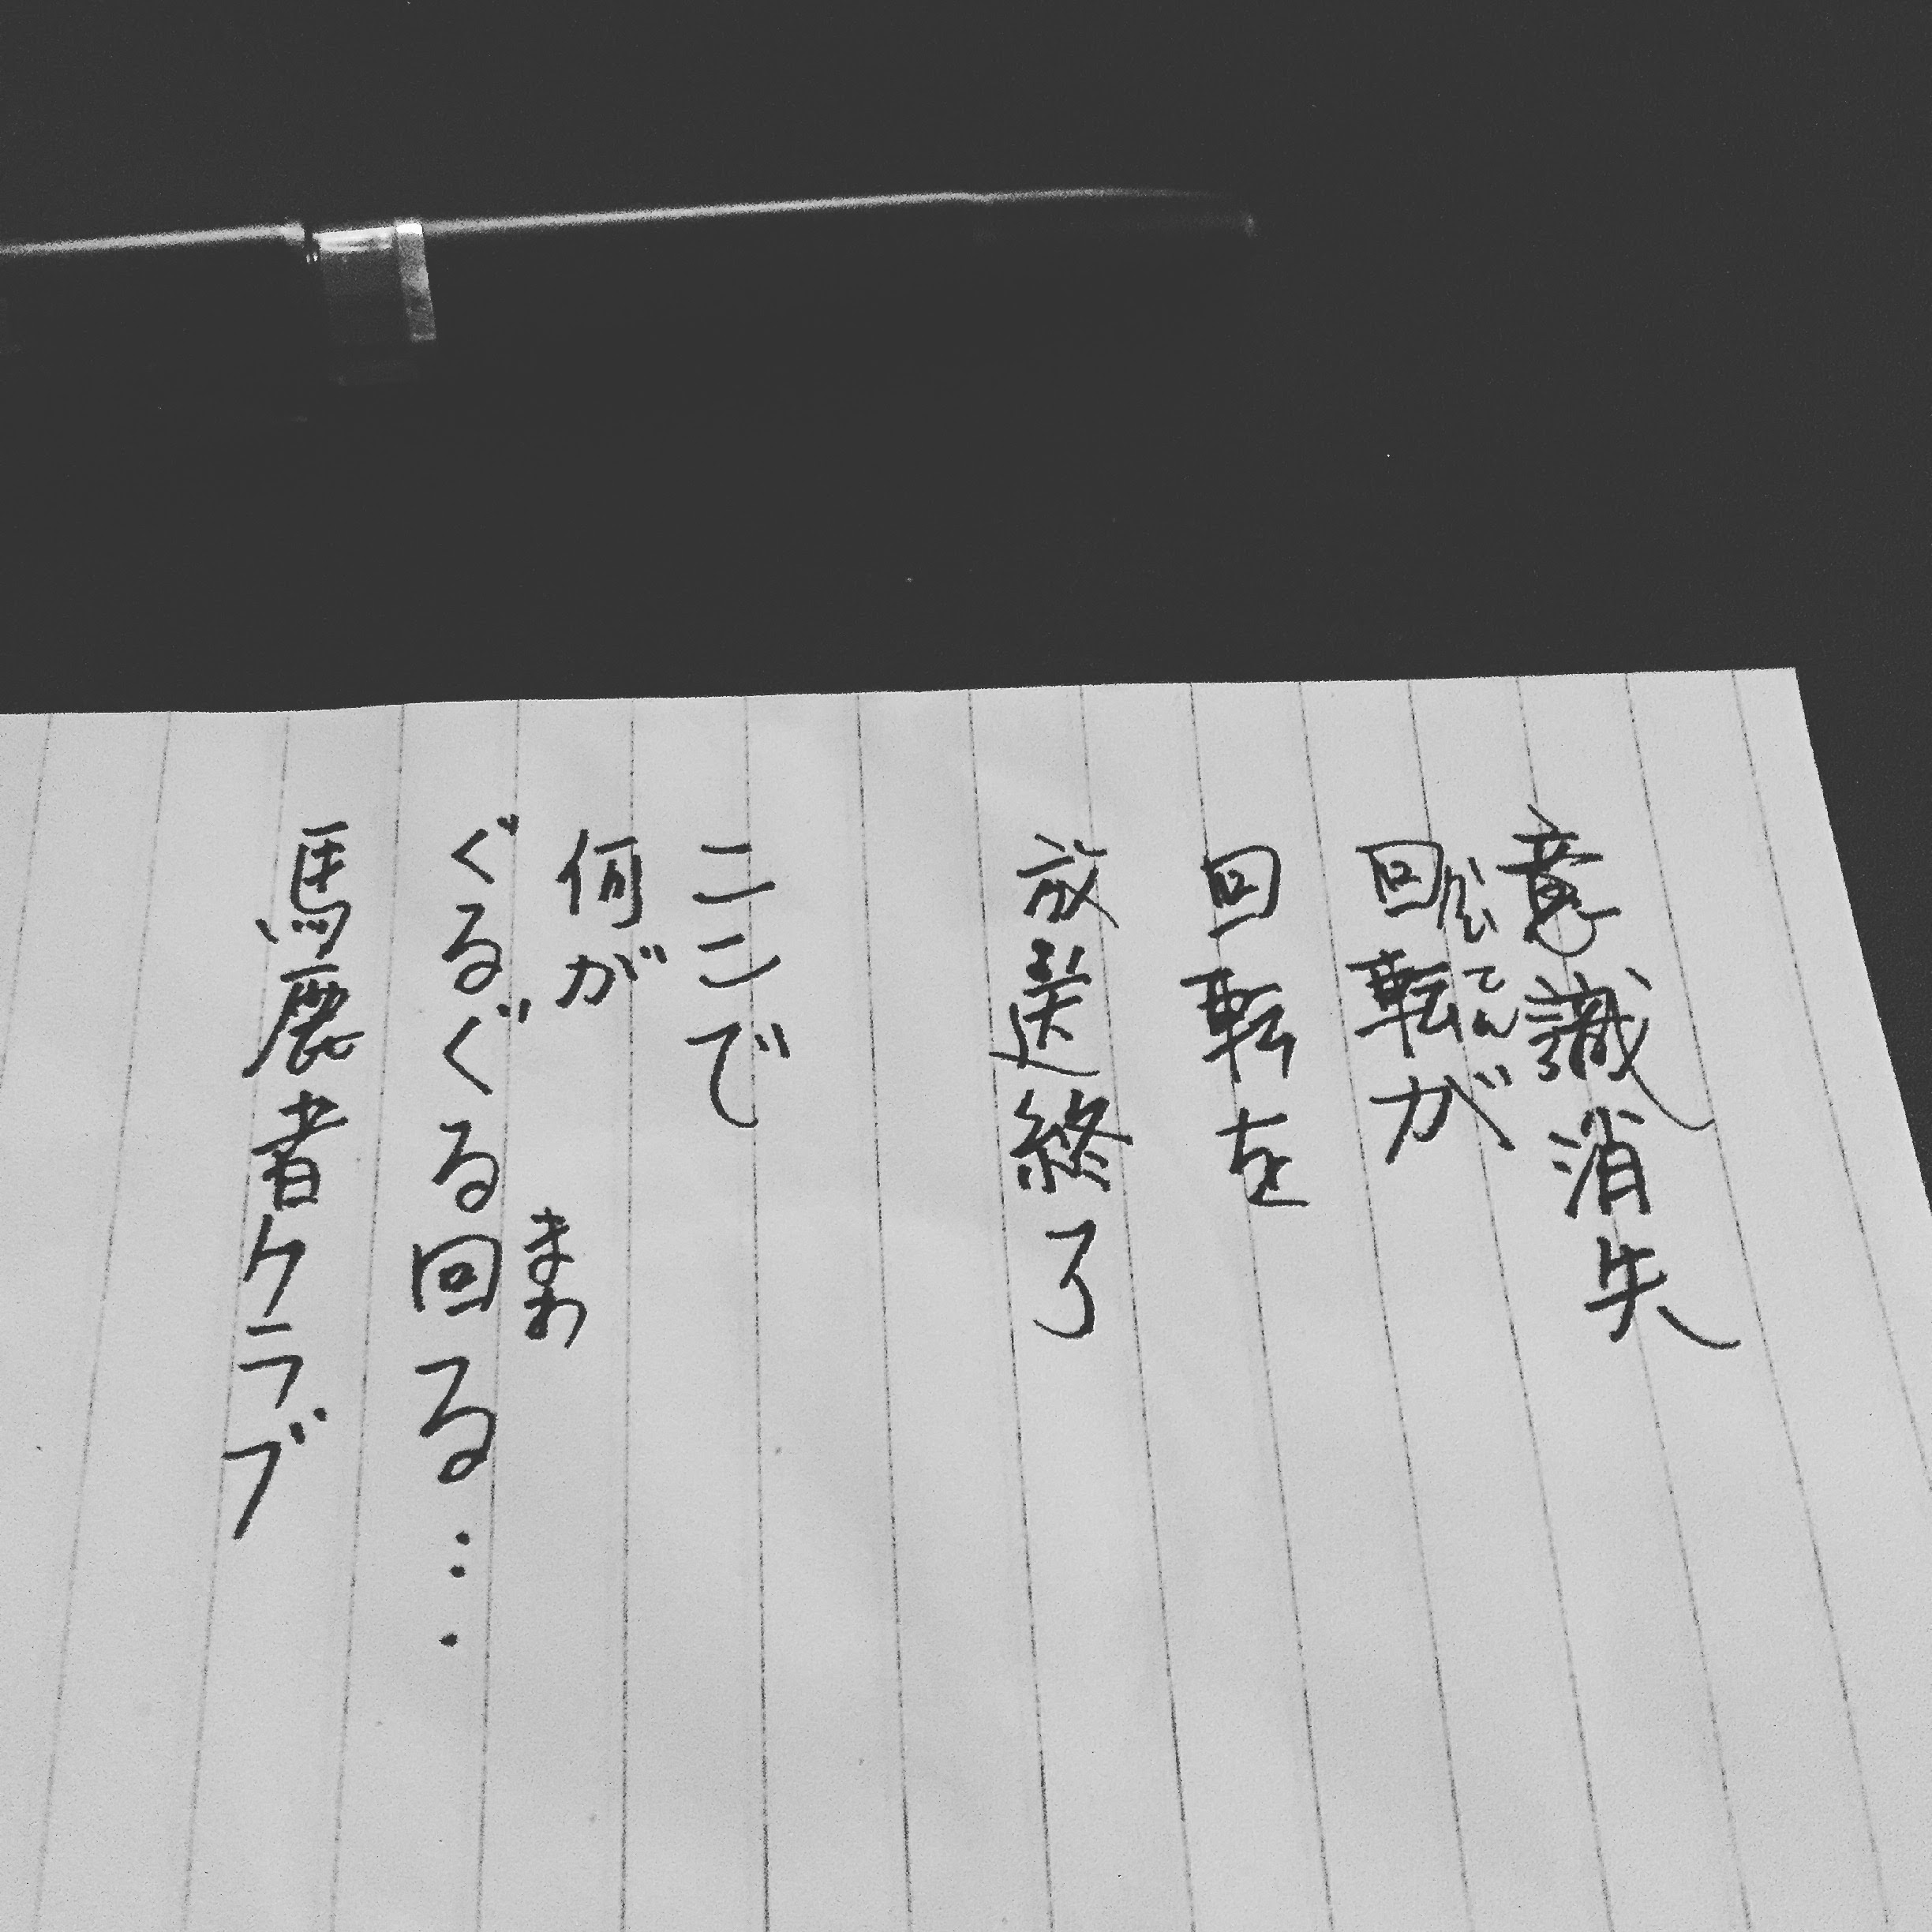 意識消失
回転が
かいてん
回転を
放送終了
ここで
何が
ぐるぐる回る…
まわ
馬鹿者クラブ